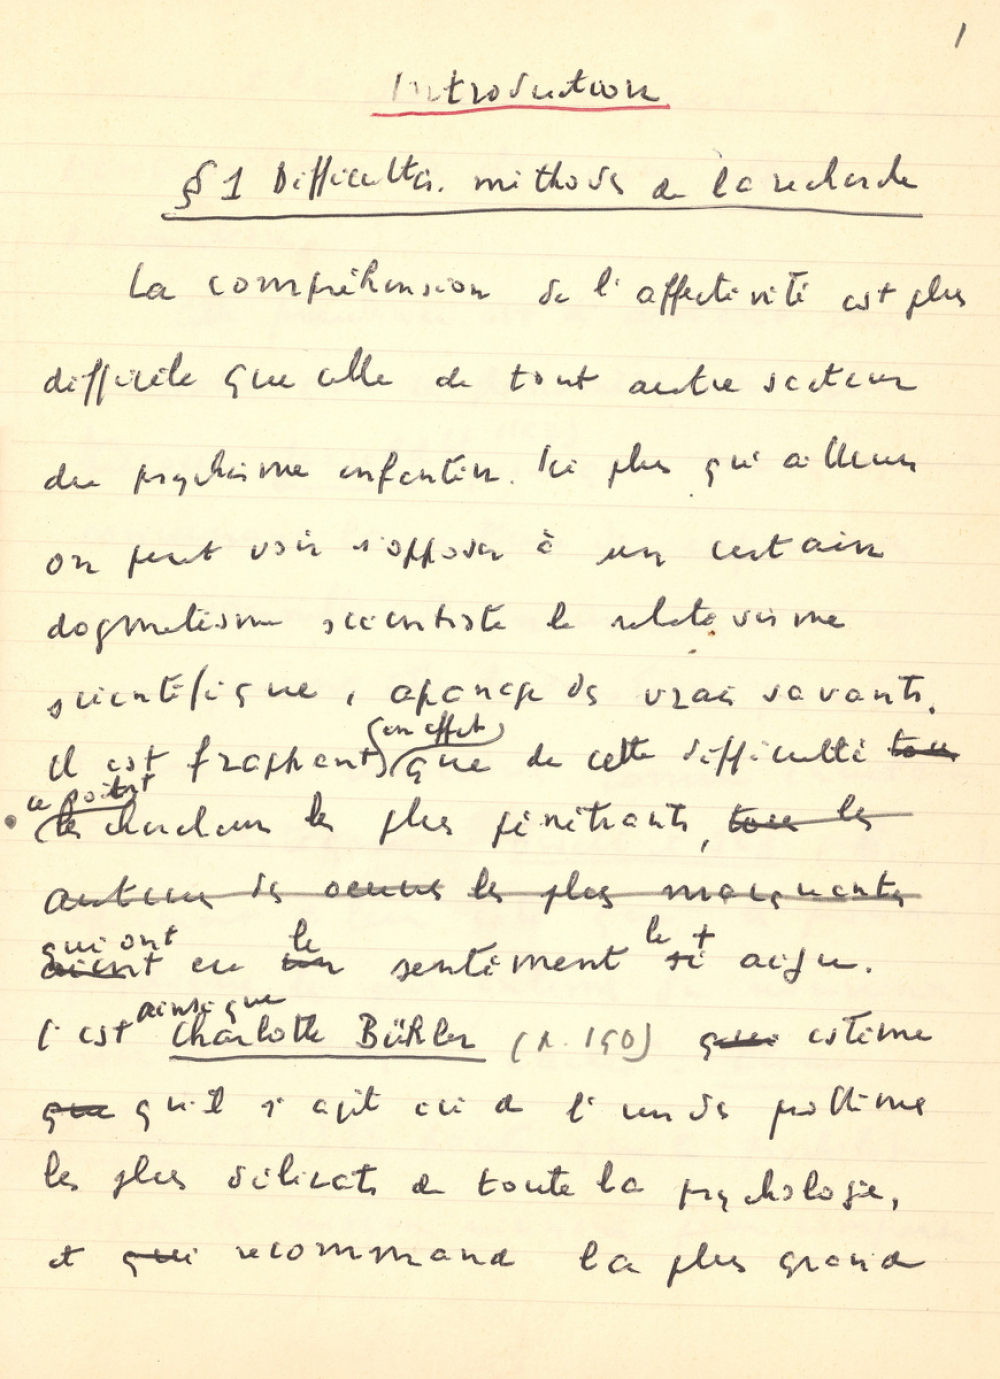 1
Introduction
§ 1 Difficultés. méthodes de la recherche
La compréhension de l'affectivité est plus
difficile que celle de tout autre secteur
du psychisme enfantin. Ici plus qu'ailleurs
on peut voir s'opposer à un certain
dogmatisme scientiste le relativisme
scientifique, apanage des vrais savants.
(en effet)
Il est frappant que de cette difficulté tous
ce point
les chercheurs les plus pénétrants, tous les
auteurs des oeuvres les plus marquantes
qui ont le le +
aient eu un sentiment si aigu.
ainsi que
C'est Charlotte Bühler (p. 190) que estime
que qu'il s'agit ici de l'un des problèmes
les plus délicats de toute la psychologie,
et qui recommande la plus grande